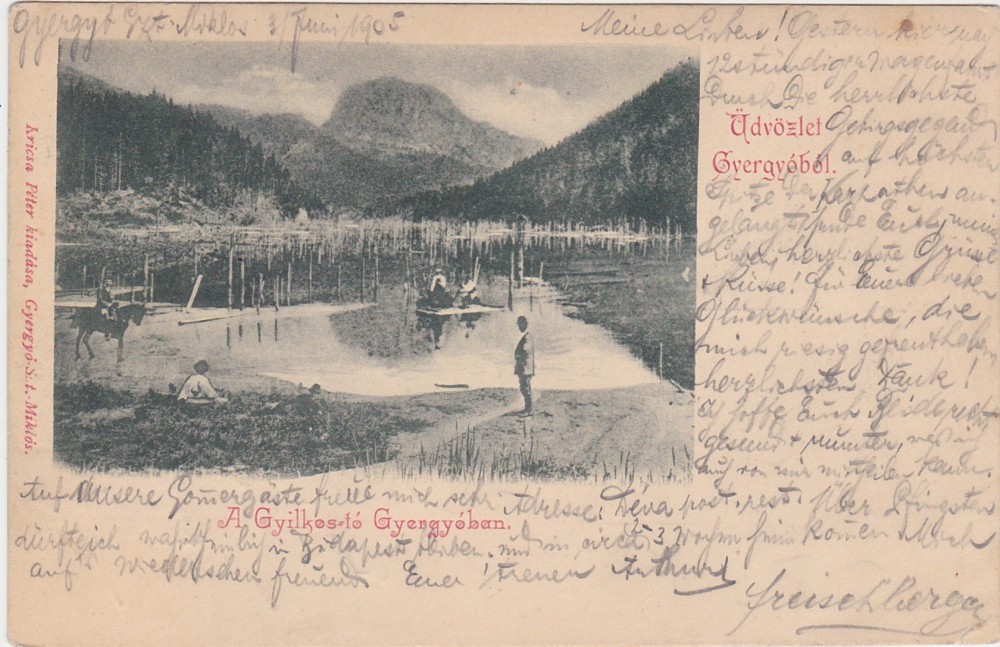 Gyergyó Szt. Miklos 3/Juni 1905
Meine Lieben! Gestern hier nach
12stündiger Wagenfahrt
Durch Die herrlichste
Gebirgsgegend
auf höchster
Spitze Der Karpathen an-
gelangt, sende Euch, meine
Lieben, herzlichste Grüsse
+ Küsse! für Euere
Glückwünsche, die
mich riesig gefreut haben,
herzlichsten Dank!
Ich hoffe Euch Beide recht
gesund + munter, was ich
auch von mir mittheilen kann.
Auf Unsere Somergäste freue mich sehr. Adresse: Déva post. rest. Über Pfingsten
dürfte ich wahrscheinlich in Budapest bleiben und in circa 3 Wochen heim komen. Mich
auf Wiedersehen freuend Euer treuer Arthur
Üdvözlet
Gyergyóból.
Kricsa Péter kiadása, Gyergyó-Szt.-Miklós.
A Gyilkos-tó Gyergyóban.